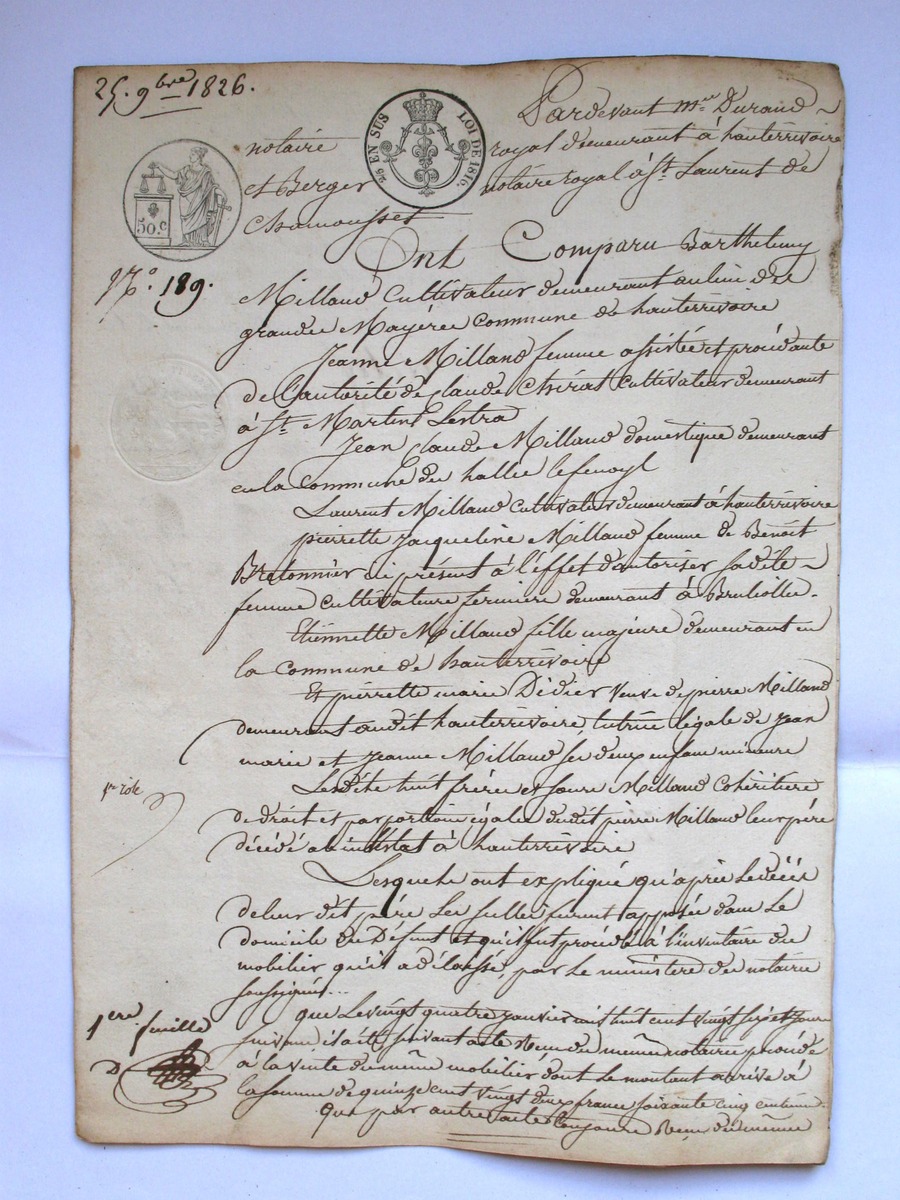 25. 9bre 1826.
25 EN SUS LOI DE 1816.
50.c
N.o 189.
Pardevant me Durand
notaire royal demeurant à hauterrivoire
et Berger notaire royal à St. Laurent de
Chamousset
Ont Comparu Barthelemy
Milland Cultivateur demeurant au lieu des
grandes Mayeres Commune de hauterrivoire
Jeanne Milland femme assistée et procédante
de l'autorité de Claude Chirat Cultivateur demeurant
à St. Martin Lestra
Jean Claude Milland domestique demeurant
en la Commune du hallie lefenoyl
Laurent Milland Cultivateur demeurant à hauterrivoire
pierrette jacqueline Milland femme de Benoit
Bretonnier ici présent à l'effet d'autoriser sadite
femme Cultivateurs fermiers demeurant à Brulliolle.
Etiennette Milland fille majeure demeurant en
la Commune de hauterrivoire
Et pierrette marie Dédier Veuve de pierre Milland
demeurant audit hauterrivoire, tutrice légale de Jean
marie et Jeanne Milland ses deux enfans mineurs
1er role
Lesdits huit frères et sœurs Milland Cohéritiers
de droit et par portions égales dudit pierre Milland leur père
décédé ab intestat à hauterrivoire
Lesquels ont expliqué qu'après le décès
de leur dit père Les scellés furent apposés dans Le
domicile du Défunt et qu'il fut procédé à l'inventaire du
mobilier qu'il a délaissé, par Le ministère du notaire
soussigné...
que Le vingt quatre janvier mil huit cent vingt six et jours
1ere feuille
suivans il a été suivant acte Reçu du même notaire procédé
D
à la vente du même mobilier dont Le montant arrive à
la somme de quinze cent vingt deux francs soixante cinq centimes.
Que par autre acte Reçu du même